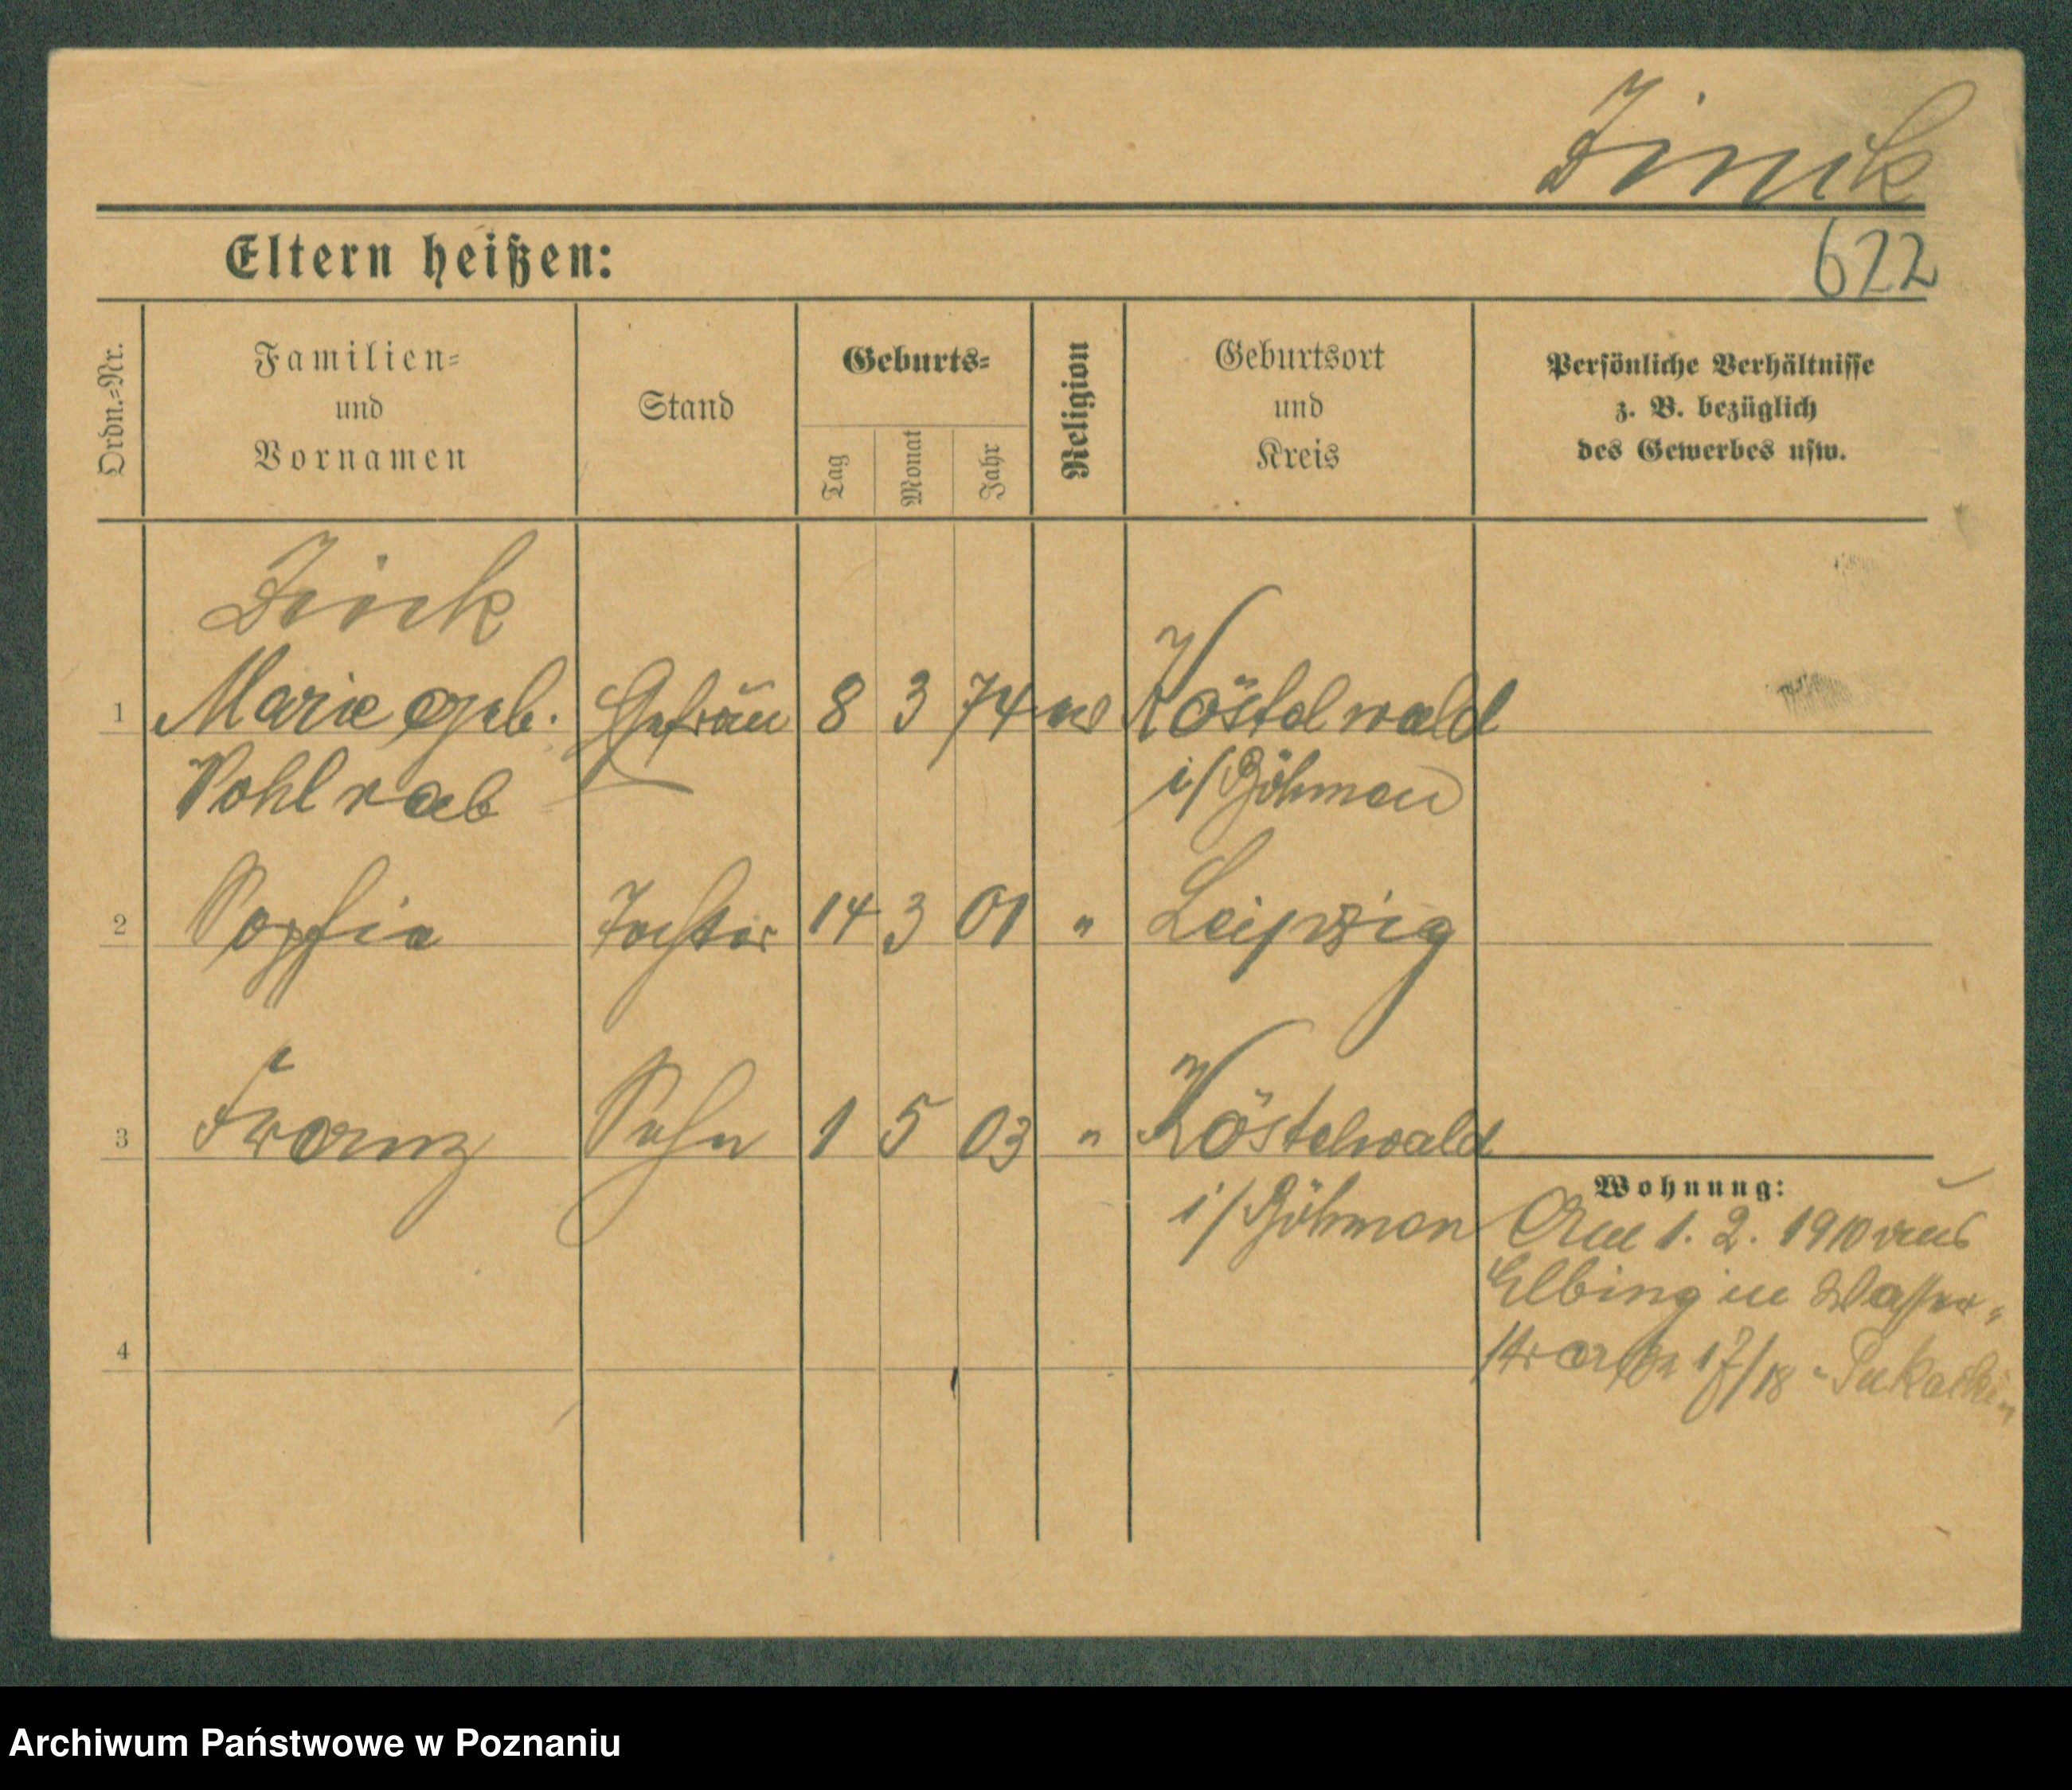 Zinik
622
Eltern heißen:
Ordn.-Nr.
Familien-
und
Vornamen
Stand
Geburts-
Tag
Monat
Jahr
Religion
Geburtsort
und
Kreis
Persönliche Verhältnisse
z. B. bezüglich
des Gewerbes usw.
1 Marie geb. 8 3 74 Köstelwald
i/Böhmen
2 Sophie Tochter 14 3 01 " Leipzig
3 Franz Sohn 1 5 03 " Köstelwald
i/Böhmen
Wohnung:
Am 1. 2. 1910 aus
Elbing in Wasser-
straße 17/18
4
Archiwum Państwowe w Poznaniu